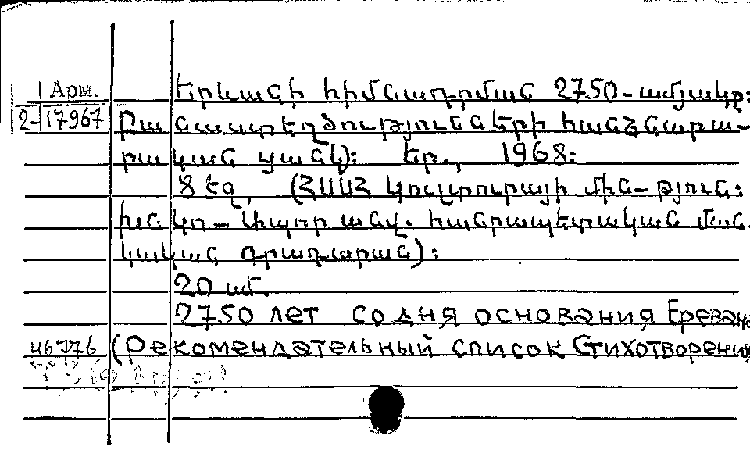 1 Арм.
2-17967
Երևանի հիմնադրման 2750-ամյակը:
(բանաստեղծությունների հանձնարա-
րական ցանկ): Եր., 1968:
8 եզ. (ՀՍՍՀ Կուլտուրայի մին-թյուն:
Խնկո-Ապոր անվ. հանրապետական ման
կական գրադարան):
20 սմ.
2750 лет со дня основания Ереван
46776 (Рекомендательный список Стихотворени